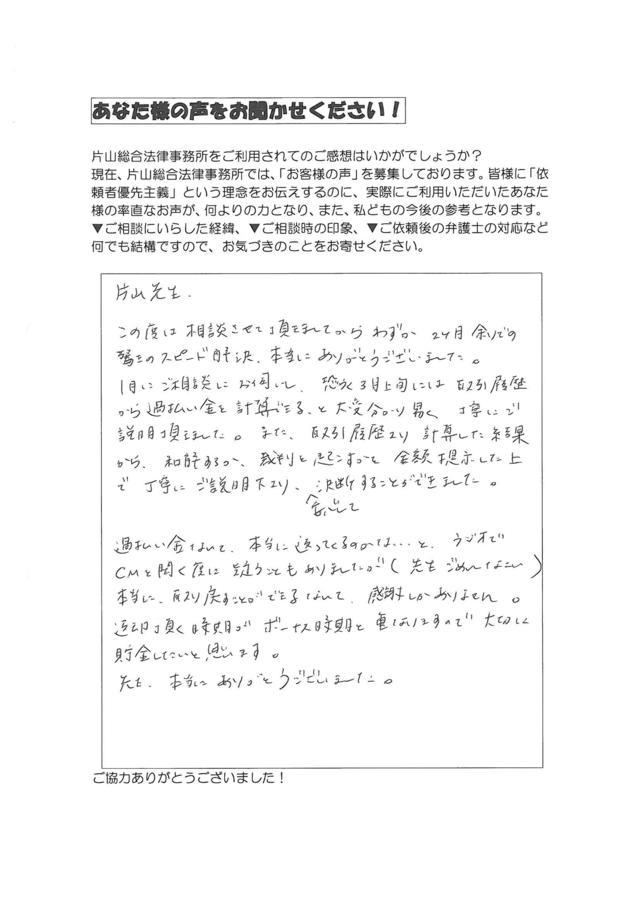 あなた様の声をお聞かせください！
片山総合法律事務所をご利用されてのご感想はいかがでしょうか？
現在、片山総合法律事務所では、「お客様の声」を募集しております。皆様に「依
頼者優先主義」という理念をお伝えするのに、実際にご利用いただいたあなた
様の率直なお声が、何よりの力となり、また、私どもの今後の参考となります。
▼ご相談にいらした経緯、▼ご相談時の印象、▼ご依頼後の弁護士の対応など
何でも結構ですので、お気づきのことをお寄せください。
片山先生．
この度は相談させて頂きましてからわずか2ヶ月余りでの
驚きのスピード解決、本当にありがとうございました。
1月にご相談にお伺いし、恐らく3月上旬には取引履歴
から過払い金を計算できると大変分かり易く丁寧にご
説明頂きました。また、取引履歴より計算した結果
から、和解するか、裁判を起こすかを金額提示した上
で丁寧にご説明下さり、決断することができました。
安心して
過払い金なんて、本当に返ってくるのかな…と、ラジオで
CMを聞く度に疑うこともありましたが（先生ごめんなさい）
本当に、取り戻すことができるなんて、感謝しかありません。
返却頂く時期がボーナス時期と重なりますので大切に
貯金したいと思います。
先生、本当にありがとうございました。
ご協力ありがとうございました！